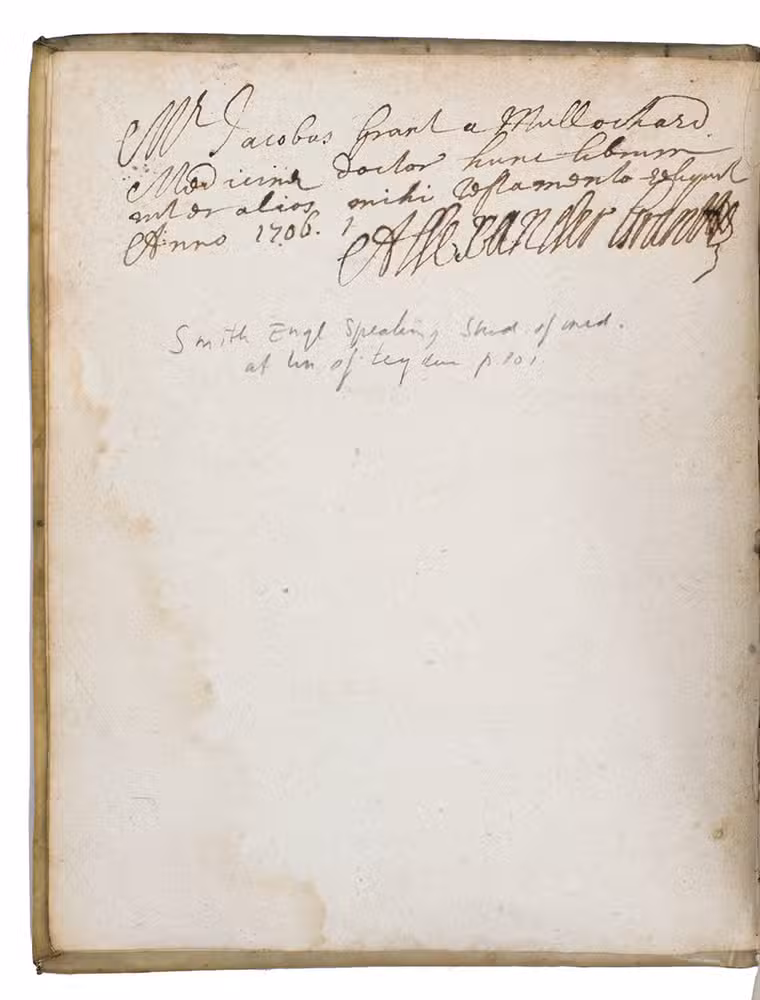 Mr Jacobus Grant a Mullochard
Medicinæ doctor hunc librum
inter alios mihi testamento reliquit
Anno 1706.
Allexander Grant
Smith Engl Speaking Stud. of med.
at Un of Leyden p 101